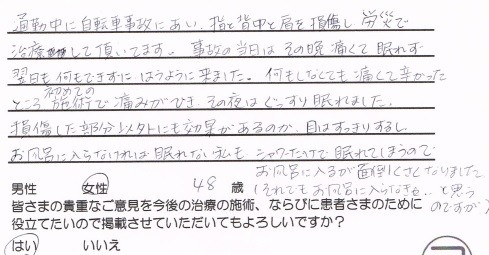 通勤中に自転車事故にあい、指と背中と肩を損傷し 労災で
治療して頂いてます。事故の当日は その晩 痛くて 眠れず
翌日も 何もできずに はうように来ました。何もしなくても 痛くて辛かった
ところ 初めての施術で 痛みがひき、その夜は ぐっすり 眠れました。
損傷した部分以外にも効果があるのか、目はすっきりするし
お風呂に入らなければ 眠れない私も シャワーだけで 眠れてしまうので
お風呂に入るが 面倒くさくなりました。
(それでも お風呂に入らなきゃ、、と思うのですが)
男性 女性 48 歳
皆さまの貴重なご意見を今後の治療の施術、ならびに患者さまのために
役立てたいので掲載させていただいてもよろしいですか?
はい いいえ